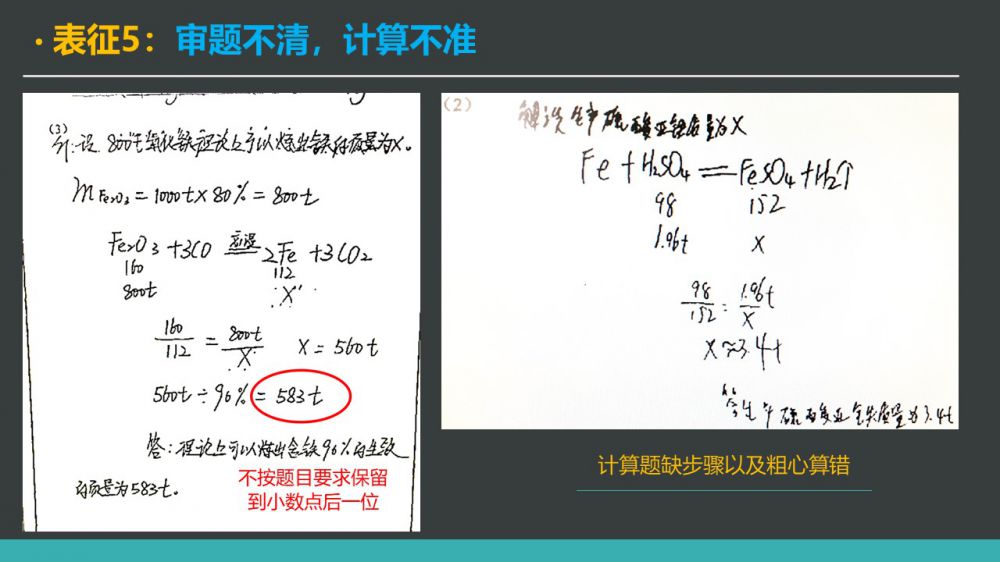 · 表征5：审题不清，计算不准
(3)
解:设 800t氧化铁理论上可以炼出铁的质量为X。
mFe₂O₃ = 1000t × 80% = 800t
Fe₂O₃ + 3CO 高温 2Fe + 3CO₂
160 112
800t X
160/112 = 800t/X X = 560t
560t ÷ 96% = 583t
答：理论上可以炼出含铁96%的生铁
的质量为583t。
不按题目要求保留
到小数点后一位
(2)
解:设生产硫酸亚铁质量为X
Fe + H₂SO₄ = FeSO₄ + H₂↑
98 152
1.96t X
98/152 = 1.96t/X
X≈3.4t
答:生产硫酸亚铁质量为3.4t
计算题缺步骤以及粗心算错